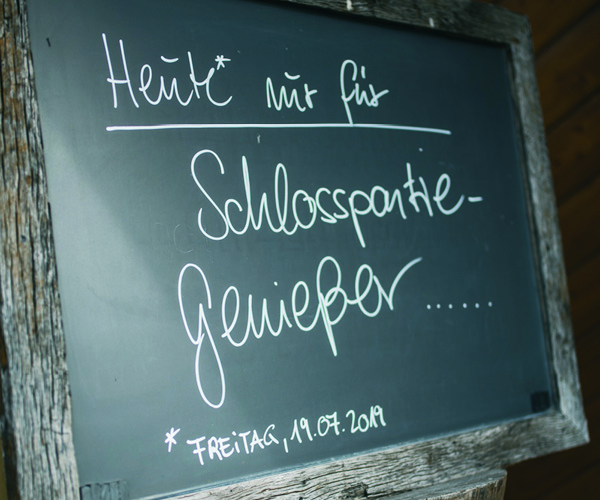 Heute* nur für
Schlosspartie-
Genießer ......
* FREiTAG, 19.07.2019